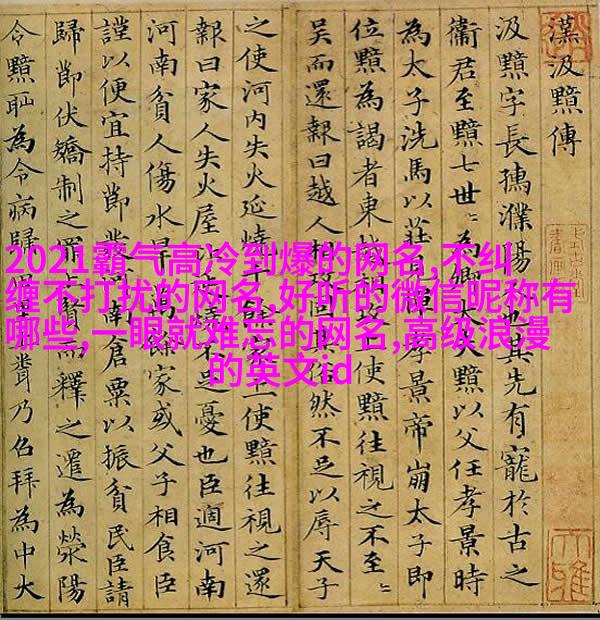 2021霸气高冷到爆的网名,不纠
缠不打扰的网名,好听的微信昵称有
哪些,一眼就难忘的网名,高级浪漫
的英文id
漢汲黯傳
汲黯字長孺濮陽也其先有寵於古之
衞君至黯七世〻為卿大夫黯以父任孝景時
為太子洗馬以莊見憚孝景帝崩太子即
位黯為謁者東越相攻上使黯往視之不至〻
吳而還報曰越人相攻固其俗然不足以辱天子
之使河內失火延燒千餘家上使黯往視之還
報曰家人失火屋比延燒不足憂也臣過河南
河南貧人傷水旱萬餘家或父子相食臣
謹以便宜持節發河南倉粟以振貧民臣請
歸節伏矯制之罪上賢而釋之遷為滎陽
令黯恥為令病歸乃召拜為中大